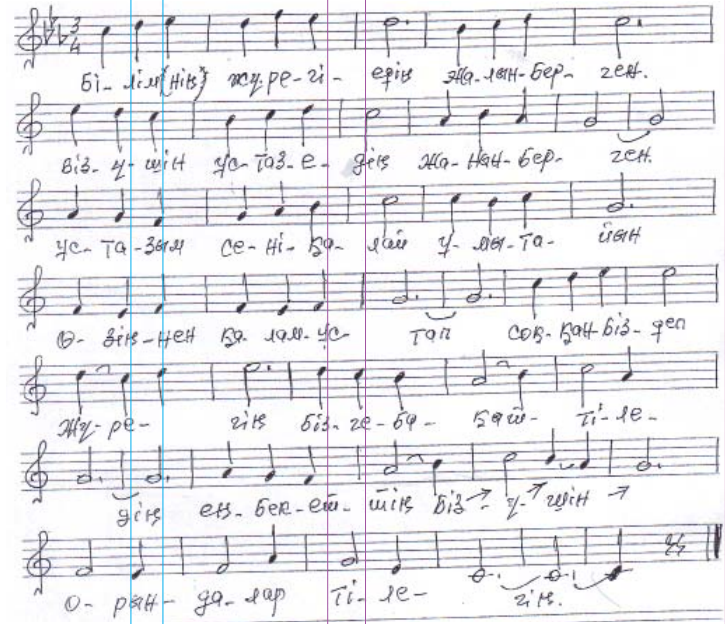 Бі- лім(нің) жү-ре-гі- едің жа-лын-бер- ген.
Біз- ү- шін ұс-таз-е- дің жа-нан-бер- ген.
ұс-та-зым се-ні-қа- лай ұ-мы-та- йын
Ө- зің-нен қа-лам-ұс- тап соқ-қан-біз-деп
жү-ре- гің біз-ге-ба- ғыш- ті-ле-
дің ең-бек-ет- тің біз- ү- шін
о- рын- да-лар ті-ле- гің.